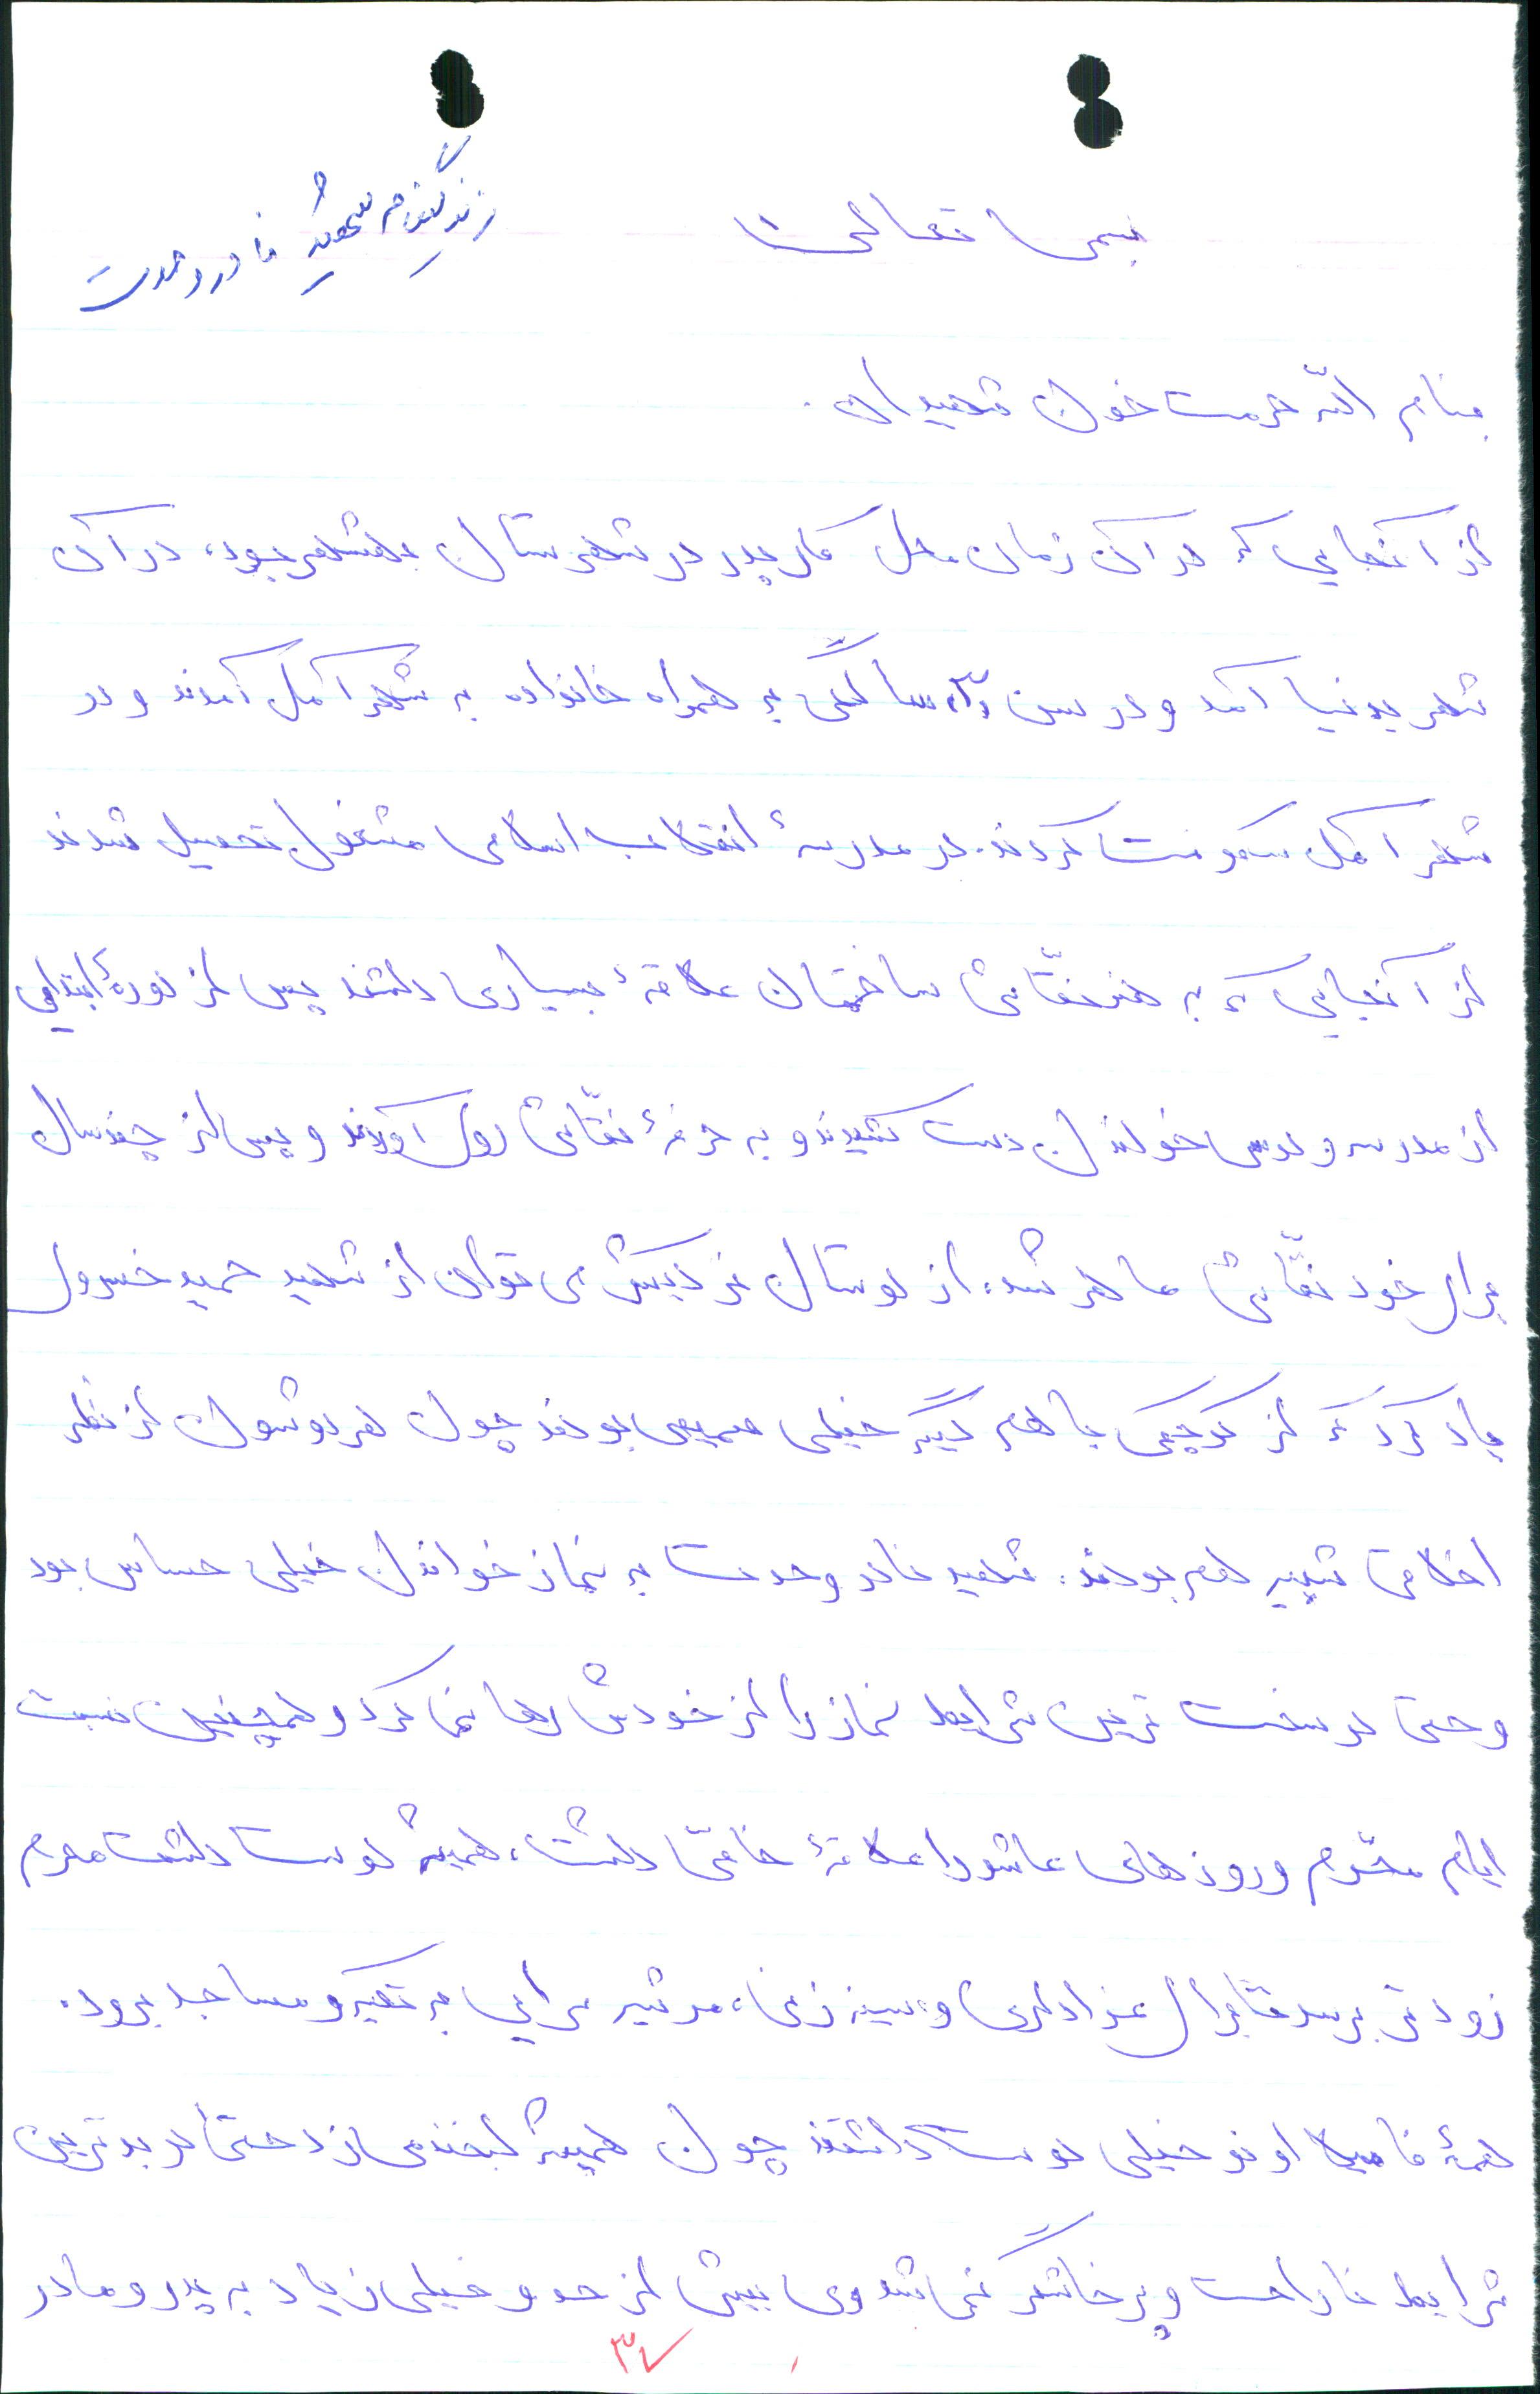 بسمه تعالی
زندگینامه شهید نادر وحدت
بنام الله حرمت خون شهیدان.
از آنجایی که در آن زمان محل کار پدر در شهرستان بهشهر بود، در آن
شهر بدنیا آمد و در سن سالگی به همراه خانواده به شهر آمل آمدند و در
شهر آمل سکونت کردند. در مدرسهٔ انقلاب اسلامی مشغول تحصیل شدند
از آنجایی که به هنر نقّاشی ساختمان علاقهٔ بسیاری داشتند پس از دورهٔ ابتدایی
از مدرسه و درس خواندن دست کشیدند و به حرفهٔ نقّاشی روی آوردند و پس از چند سال
برای خود نقّاشی ماهر شد. از دوستان نزدیکش می توان از شهید حمید خسروی
یاد کرد که از کوچیکی با هم دیگه خیلی صمیمی بودند چون هر دوشون از نظر
اخلاقی شبیه هم بودند. شهید نادر وحدت به نماز خواندن خیلی حساس بود
و حتی در سخت ترین شرایط نماز را از خودش رها نمی کرد و همچنین نسبت
ایام محّرم و روزهای عاشورا علاقهٔ خاصّی داشت، همیشه دوست داشت محرم
زودتر برسد تا برای عزاداری و سینه زنی، مرثیه سرایی به تکیه و مساجد برود.
همهٔ فامیلا اونو خیلی دوست داشتند چون همیشه لبخند می زد حتی در بدترین
شرایط ناراحت و پرخاشگر نمی شد وی بیش از حد و خیلی زیاد به پدر و مادر
۳۷